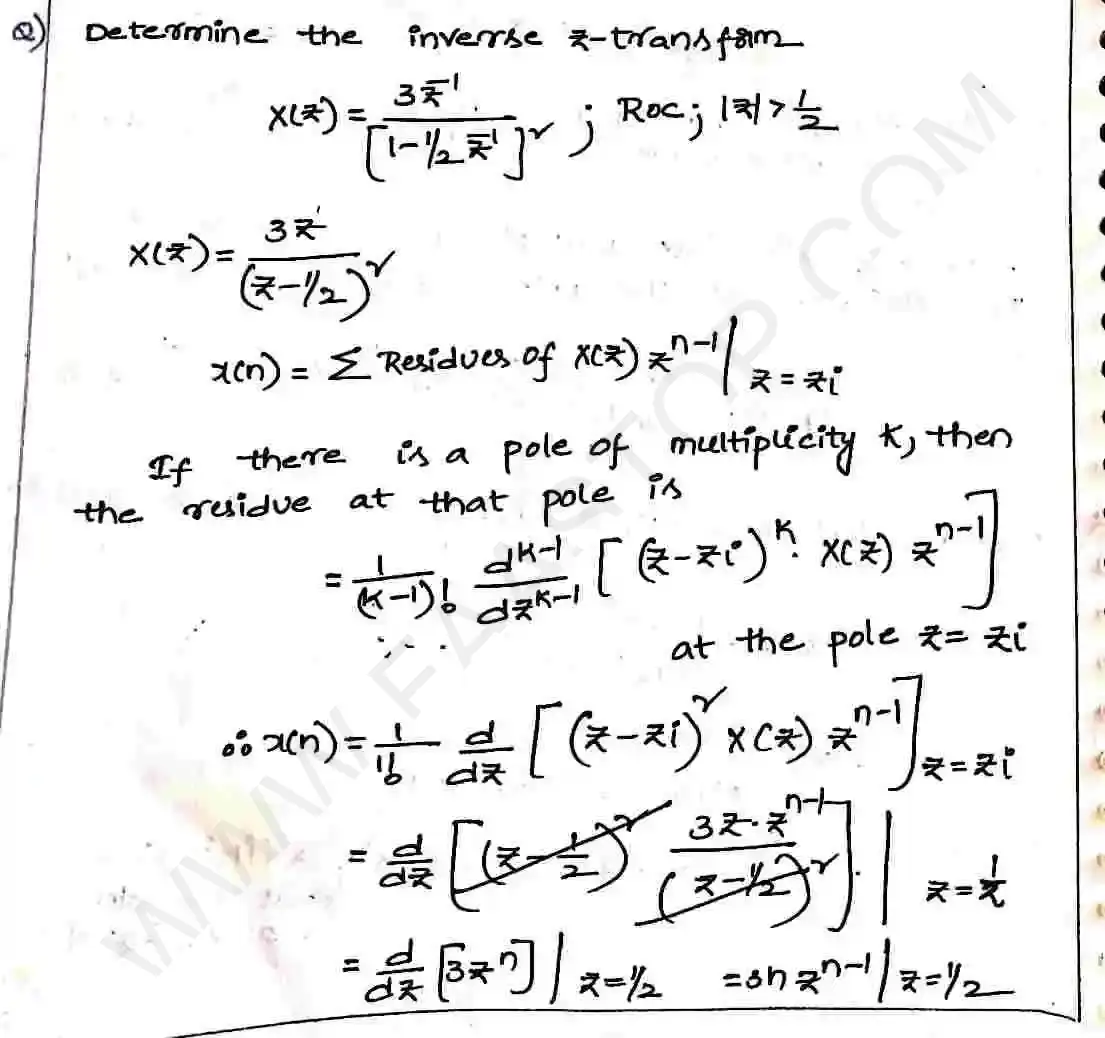 Q) Determine the inverse z-transform
X(z) = 3z⁻¹ / [1-1/2 z⁻¹]² ; Roc; |z| > 1/2
X(z) = 3z / (z-1/2)²
x(n) = Σ Residues of X(z) zⁿ⁻¹ | z = zi
If there is a pole of multiplicity K, then
the residue at that pole is
= 1/(K-1)! d^(K-1)/dz^(K-1) [(z-zi)^K · X(z) zⁿ⁻¹]
at the pole z = zi
∴ x(n) = 1/1! d/dz [(z-zi)² X(z) zⁿ⁻¹] z = zi
= d/dz [(z-1/2)² 3z·zⁿ⁻¹ / (z-1/2)²] | z = 1/2
= d/dz [3zⁿ] | z=1/2 = 3n zⁿ⁻¹ | z=1/2
WWW.FAWSTOP.COM